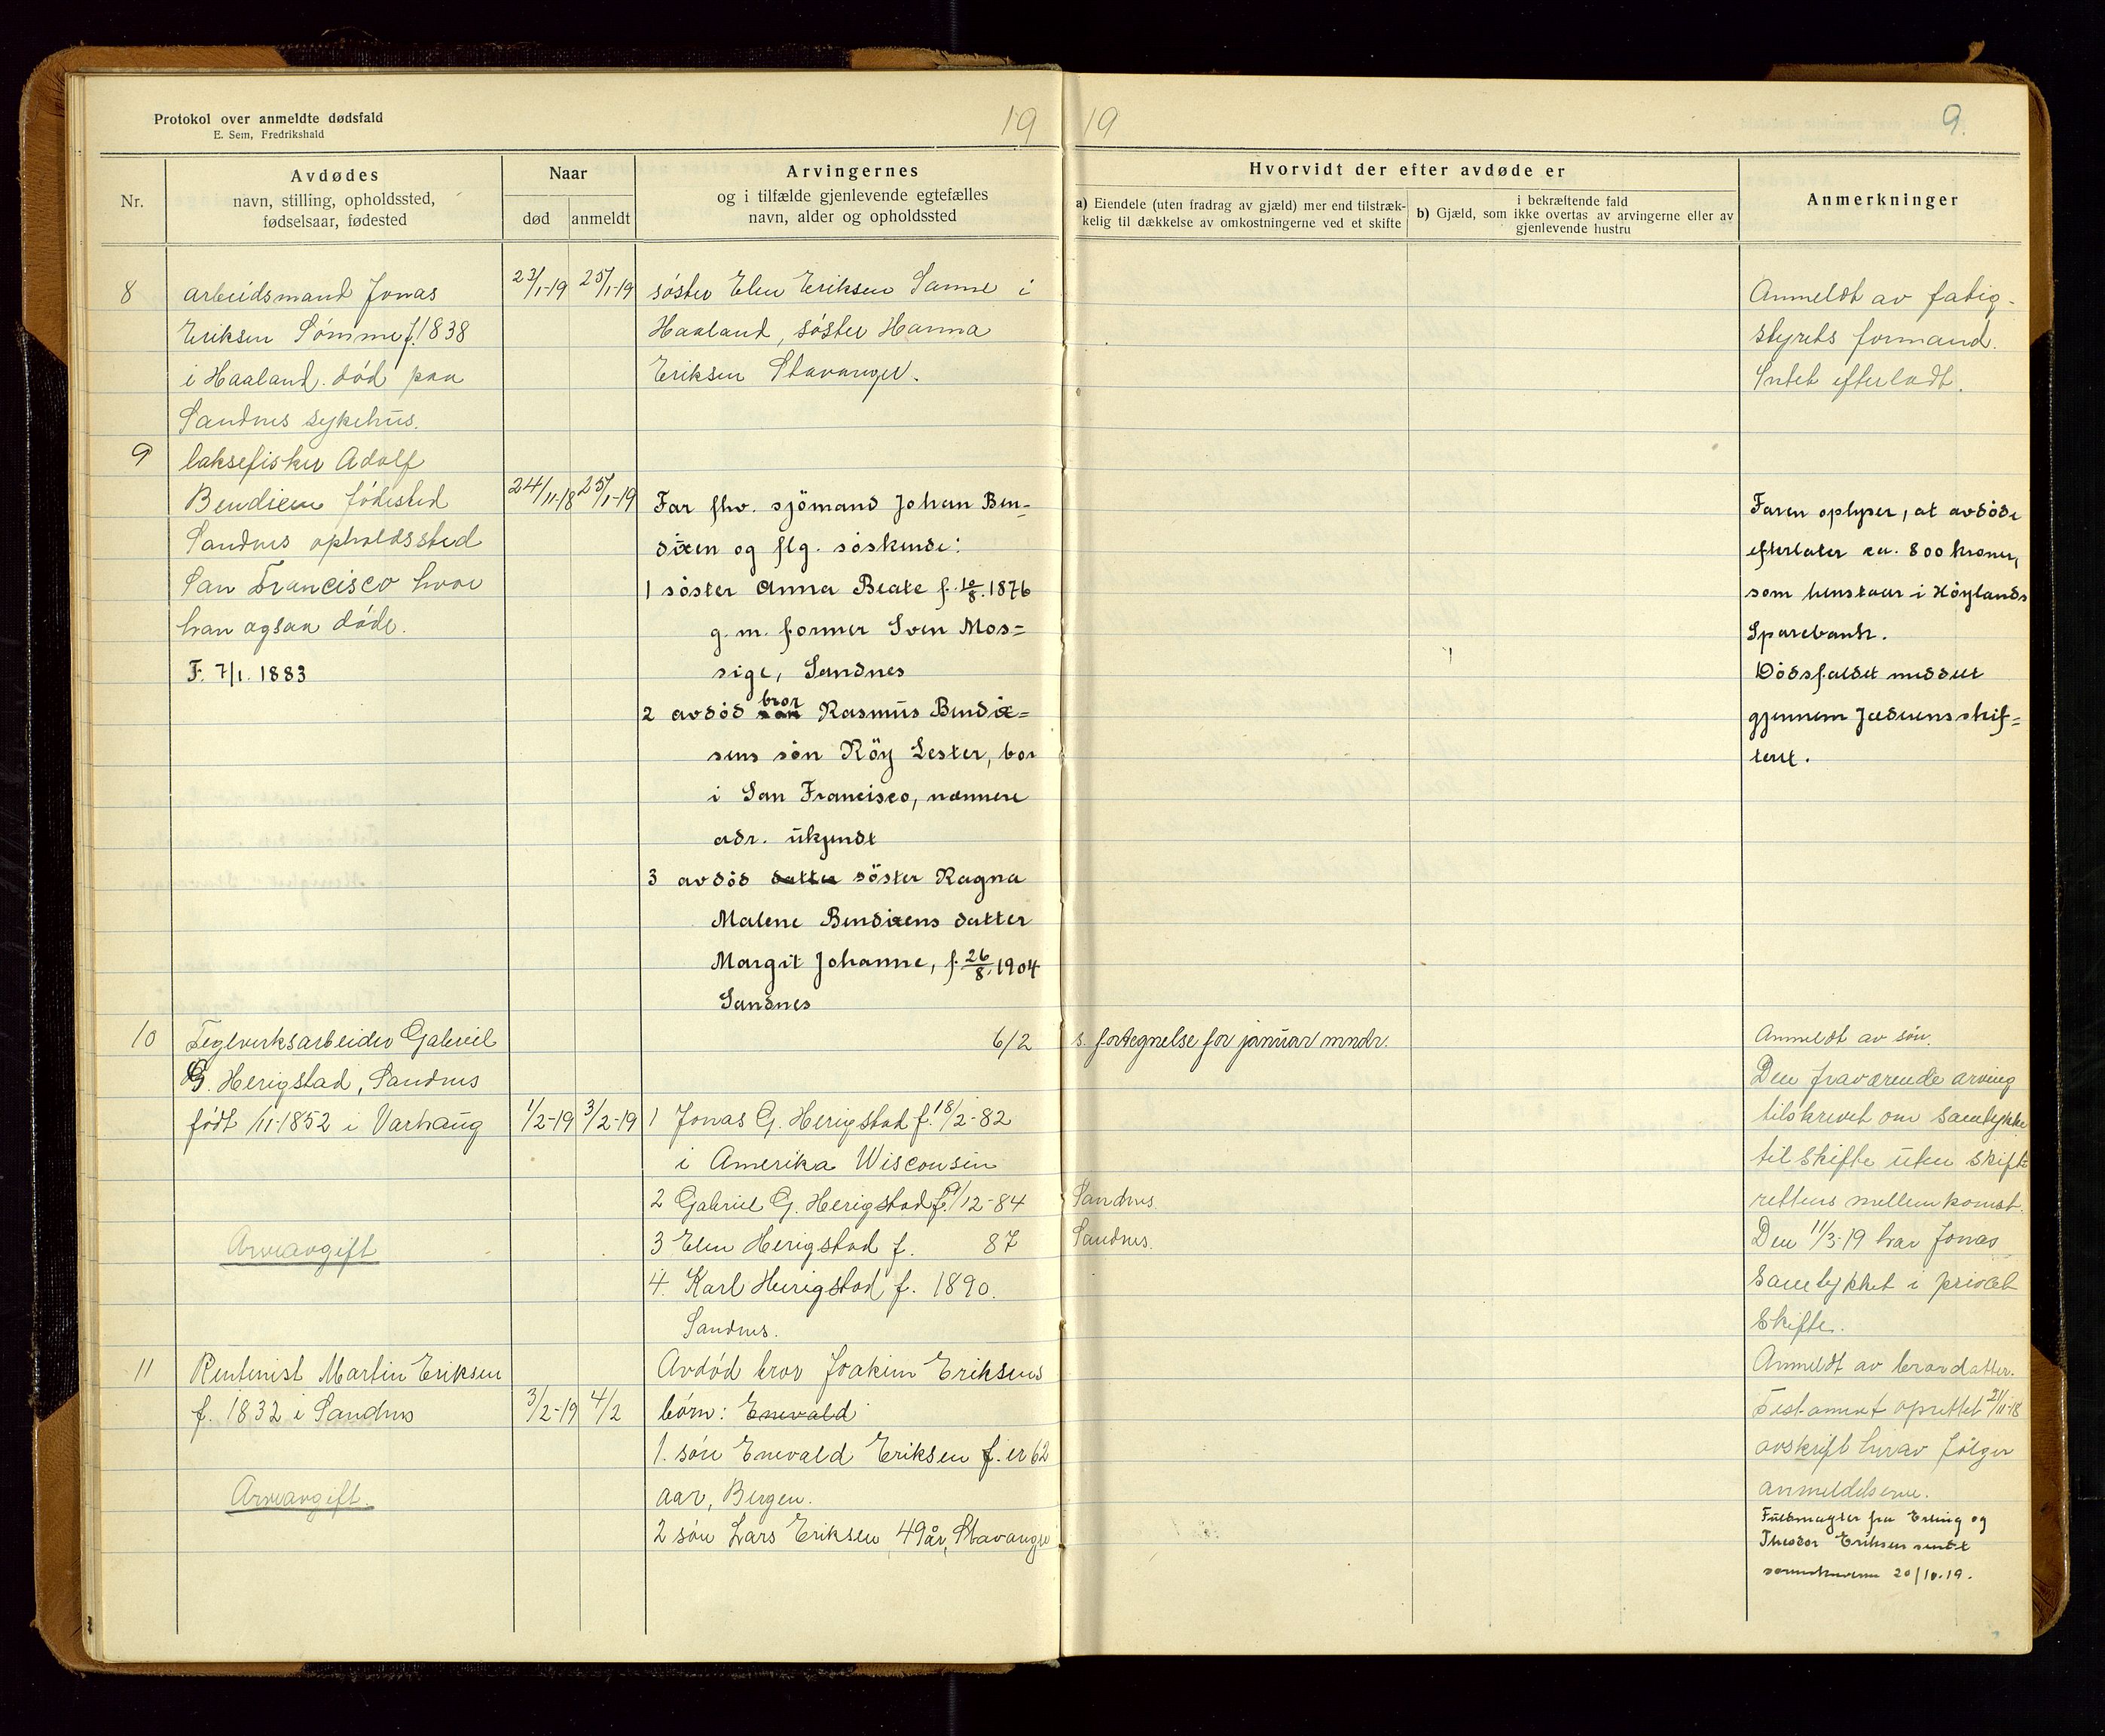 Protokol over anmeldte dødsfald
E. Sem, Fredrikshald
19
19
9.
Nr.
Avdødes
navn, stilling, opholdssted,
fødselsaar, fødested
Naar
død
anmeldt
Arvingernes
og i tilfælde gjenlevende egtefælles
navn, alder og opholdssted
Hvorvidt der efter avdøde er
a) Eiendele (uten fradrag av gjæld) mer end tilstræk-
kelig til dækkelse av omkostningerne ved et skifte
b) Gjæld, som i bekræftende fald
ikke overtas av arvingerne eller av
gjenlevende hustru
Anmerkninger
8
arbeidsmand Jonas
Eriksen Sømme f. 1838
i Haaland. død paa
Sandnes sykehus.
23/1-19
25/1-19
søster Elen Eriksen Sømme i
Haaland, søster Hanna
Eriksen Stavanger.
Anmeldt av fatig-
styrets formand.
Intet efterladt.
9
laksefisker Adolf
Bendixen fødested
Sandnes opholdssted
San Francisco hvor
han ogsaa døde.
F. 7/1. 1883
24/11-18
25/1-19
Far fhv. sjømand Johan Ben-
dixen og flg. søskende:
1 søster Anna Beate f. 10/8. 1876
g. m. former Sven Mos=
sige, Sandnes
2 avdød bror Rasmus Bendix=
sens søn Røy Lester, bor
i San Francisco, nærmere
adr. ukjendt
3 avdød datter søster Ragna
Malene Bendixens datter
Margit Johanne, f. 26/8. 1904
Sandnes
Faren oplyser, at avdøde
efterlater ca. 800 kroner,
som henstaar i Høylands
Sparebank.
Dødsfaldet meddelt
gjennem Jæderens skif=
teret.
10
Teglverksarbeider Gabriel
G. Herigstad, Sandnes
født /11-1852 i Varhaug
Arveavgift
1/2-19
3/2-19
6/2
s. fortegnelse for januar mndr.
1 Jonas G. Herigstad f. 18/2-82
i Amerika Wisconsin
2 Gabriel G. Herigstad f. 9/12-84
Sandnes.
3 Elen Herigstad f. 87
Sandnes.
4. Karl Herigstad f. 1890.
Sandnes.
Anmeldt av søn.
Den fraværende arving
tilskrevet om samtykke
til skifte uten skifte
rettens mellemkomst.
Den 11/3-19 har Jonas
samtykket i privat
skifte.
11
Rentenist Martin Eriksen
f. 1832 i Sandnes
Arveavgift.
3/2-19
4/2
Avdød bror Joakim Eriksens
børn: Enevald
1. søn Enevald Eriksen f. er 62
aar, Bergen.
2 søn Lars Eriksen, 49 år, Stavanger
Anmeldt av brordatter.
Testament oprettet 21/11-18
avskrift herav følger
anmeldelserne.
Fuldmagter fra Erling og
Theodor Eriksen sendt
sorenskriveren 20/10.19.